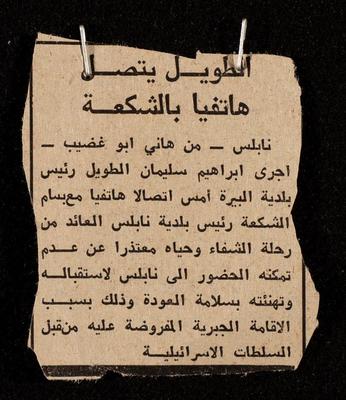 الطويل يتصل
هاتفيا بالشكعة
نابلس - من هاني ابو غضيب -
اجرى ابراهيم سليمان الطويل رئيس
بلدية البيرة أمس اتصالا هاتفيا مع بسام
الشكعة رئيس بلدية نابلس العائد من
رحلة الشفاء وحياه معتذرا عن عدم
تمكنه الحضور الى نابلس لاستقباله
وتهنئته بسلامة العودة وذلك بسبب
الاقامة الجبرية المفروضة عليه من قبل
السلطات الاسرائيلية